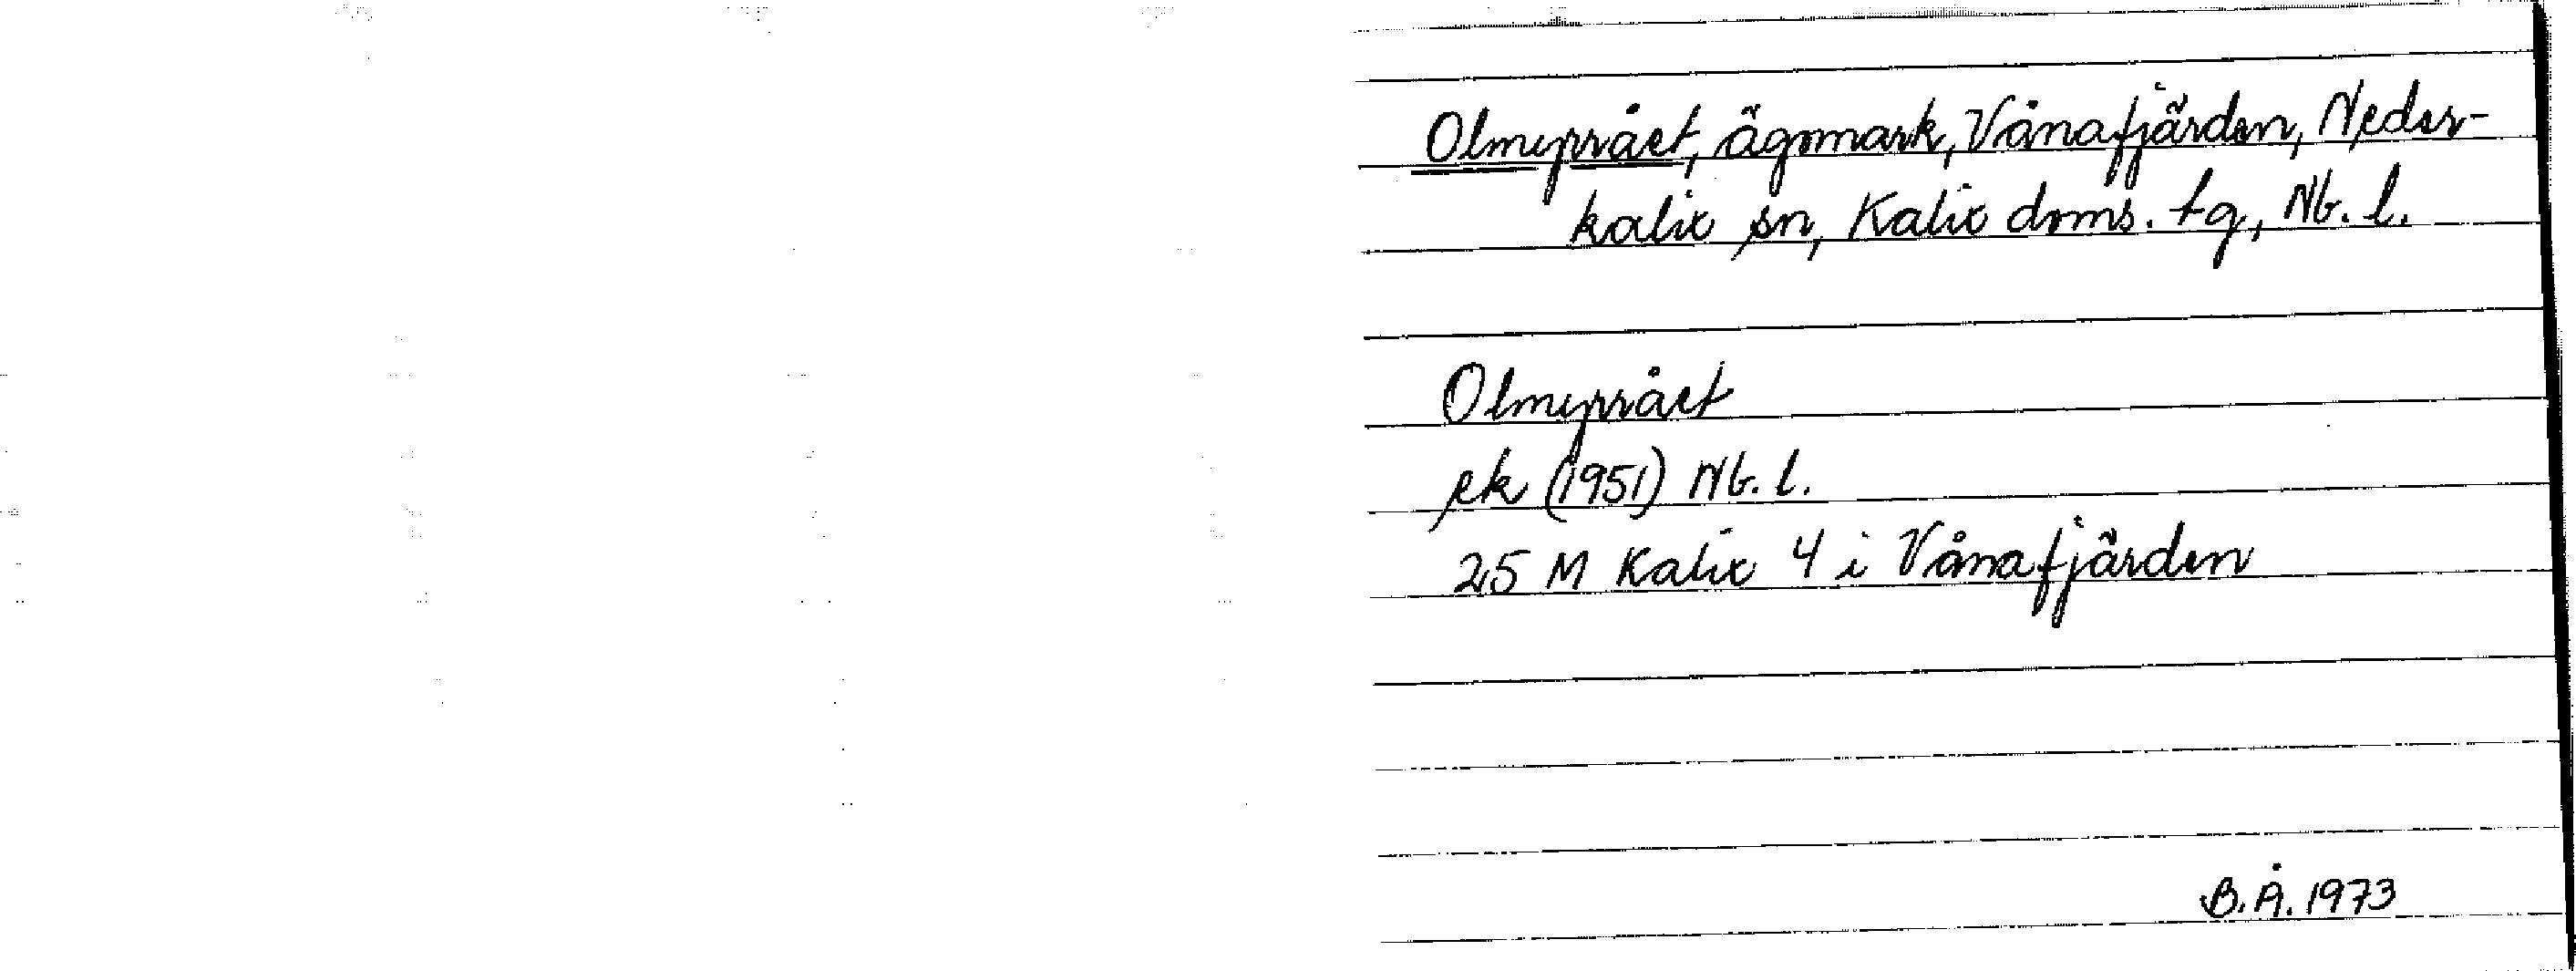 Olmyrråct, ägomark, Vånafjärden, Neder-
kalix sn, Kalix doms. tg, Nb. l.
Olmyrråct
ek (1951) Nb. l.
25 M Kalix 4 i Vånafjärden
B.Å. 1973